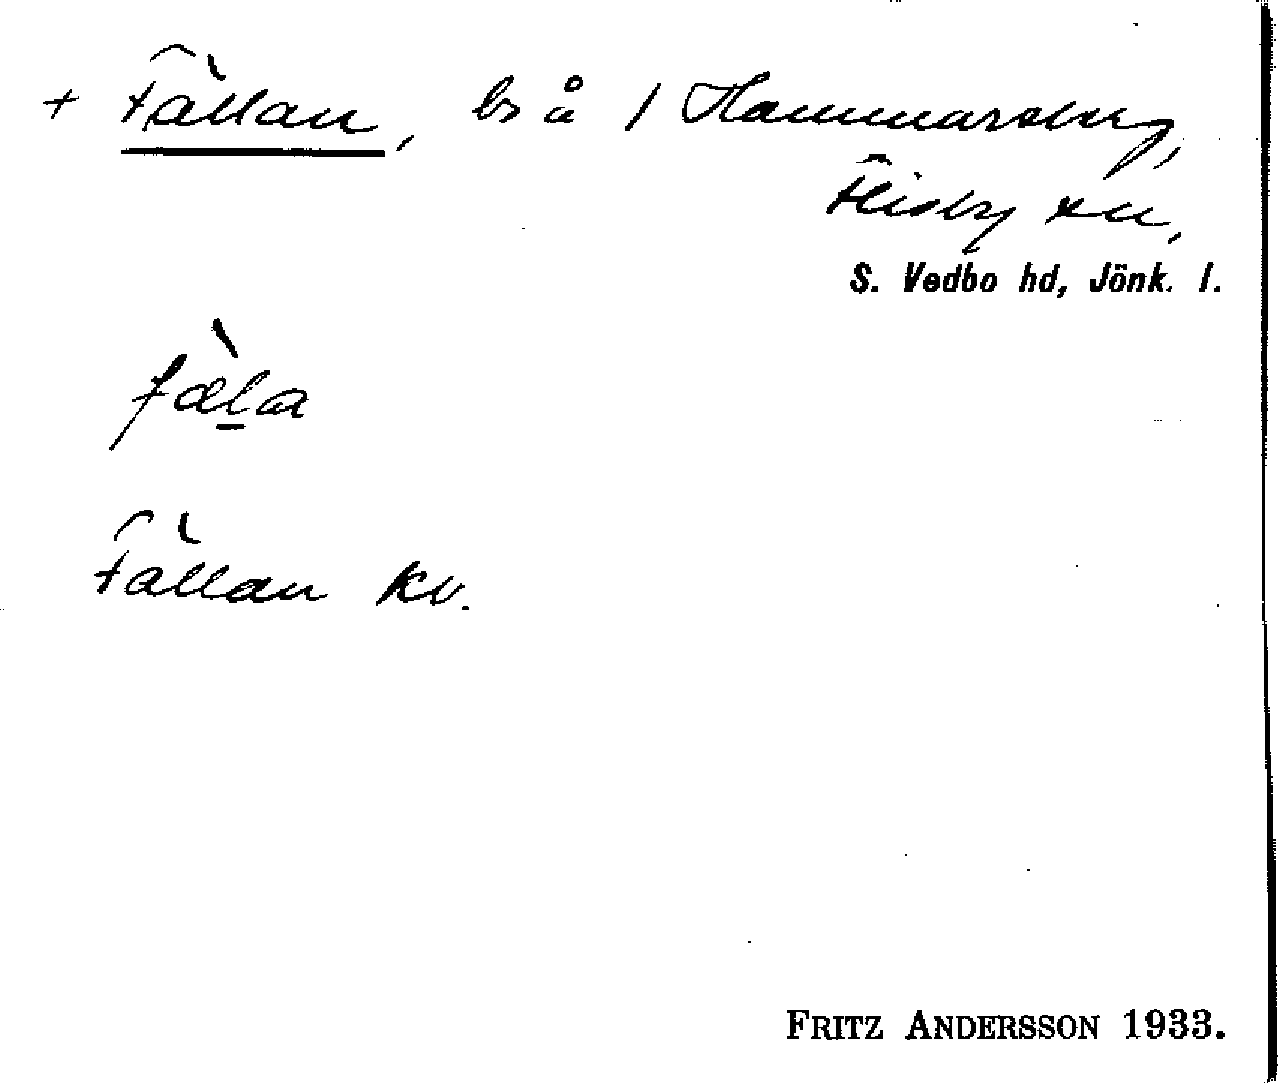 + Fällan, bs å 1 Hammarsberg,
Flisby sn,
S. Vedbo hd, Jönk. l.
fæ̀l̠a
Fällan kv.
FRITZ ANDERSSON 1933.